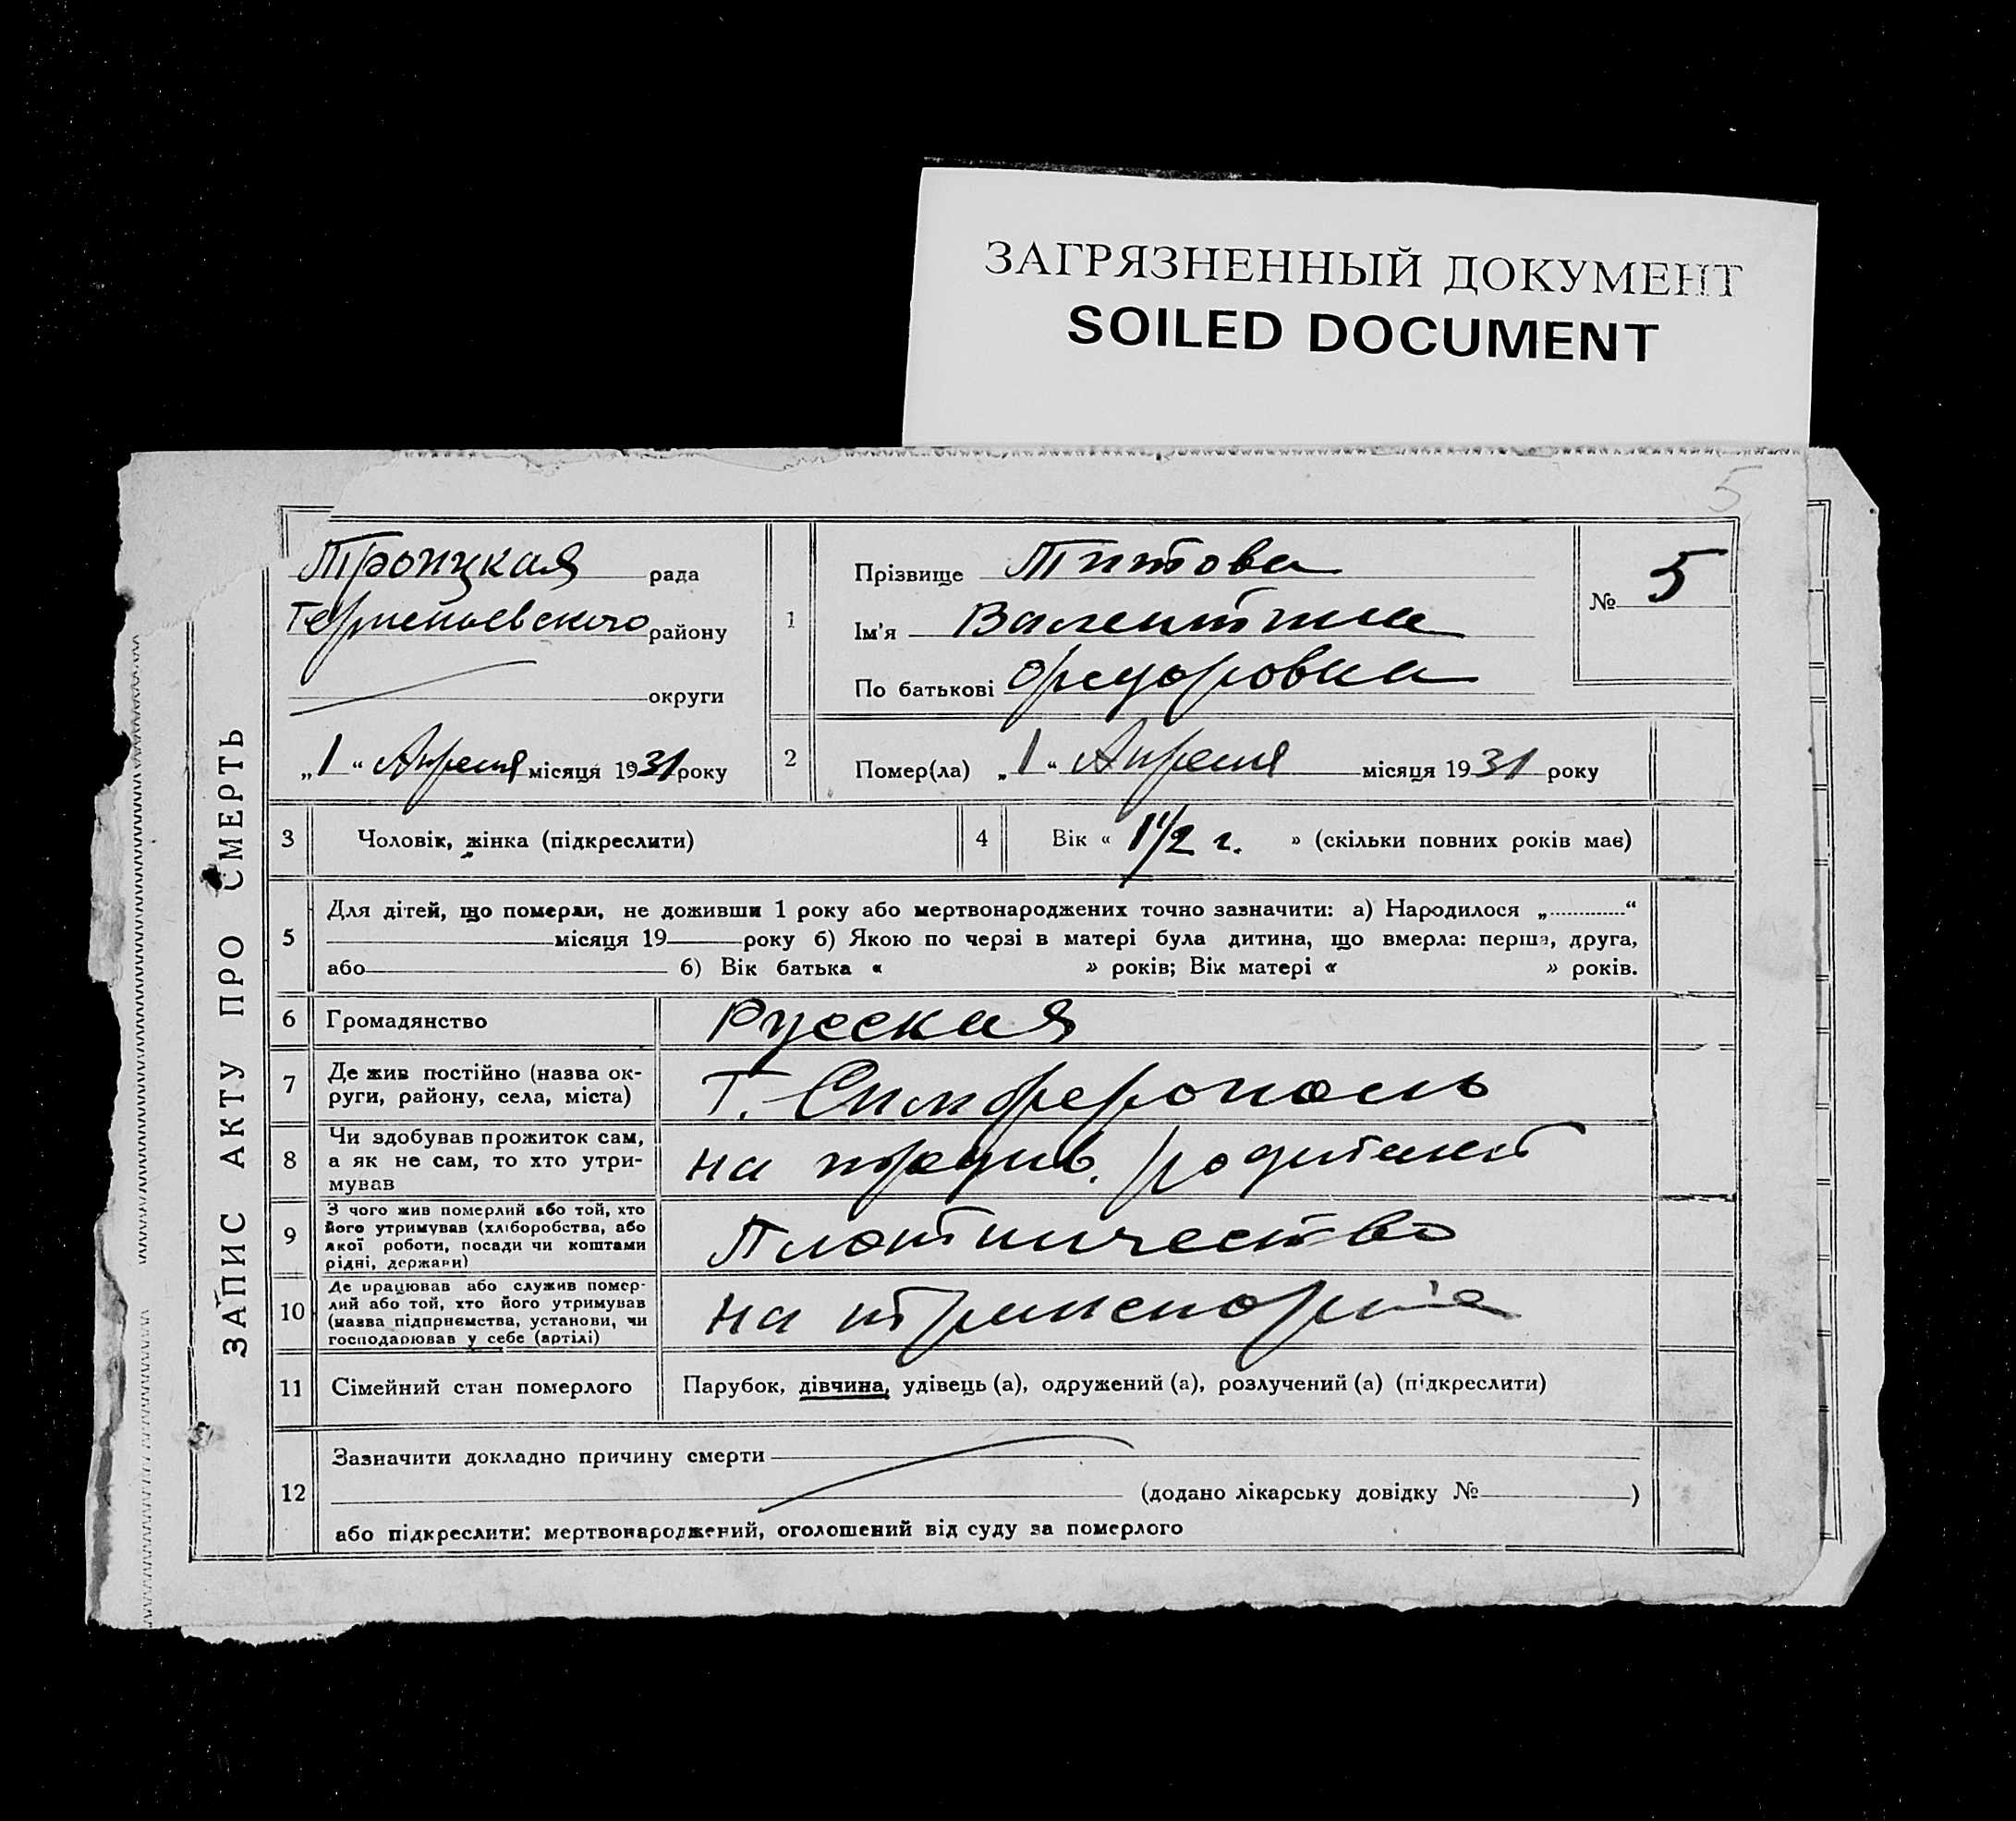 ЗАГРЯЗНЕННЫЙ ДОКУМЕНТ
SOILED DOCUMENT
5
ЗАПИС АКТУ ПРО СМЕРТЬ
Троицкая рада
району
округи
„1“ Апреля місяця 1931 року
1
Прізвище Титова
Ім'я Валентина
По батькові Федоровна
№ 5
2
Помер(ла) „1“ Апреля місяця 1931 року
3 Чоловік, жінка (підкреслити)
4 Вік « 1 1/2 г. » (скільки повних років має)
5 Для дітей, що померли, не доживши 1 року або мертвонароджених точно зазначити: а) Народилося „............“
місяця 19 року б) Якою по черзі в матері була дитина, що вмерла: перша, друга,
або б) Вік батька « » років; Вік матері « » років.
6 Громадянство Русская
7 Де жив постійно (назва ок-
руги, району, села, міста) г. Симферополь
8 Чи здобував прожиток сам,
а як не сам, то хто утри-
мував
на иждив. родителей
9 З чого жив померлий або той, хто
його утримував (хліборобства, або
якої роботи, посади чи коштами
рідні, держави)
Плотничество
10 Де працював або служив помер-
лий або той, хто його утримував
(назва підприємства, установи, чи
господарював у себе (артілі)
на транспорте
11 Сімейний стан померлого Парубок, дівчина, удівець (а), одружений (а), розлучений (а) (підкреслити)
12 Зазначити докладно причину смерти
(додано лікарську довідку № )
або підкреслити: мертвонароджений, оголошений від суду за померлого